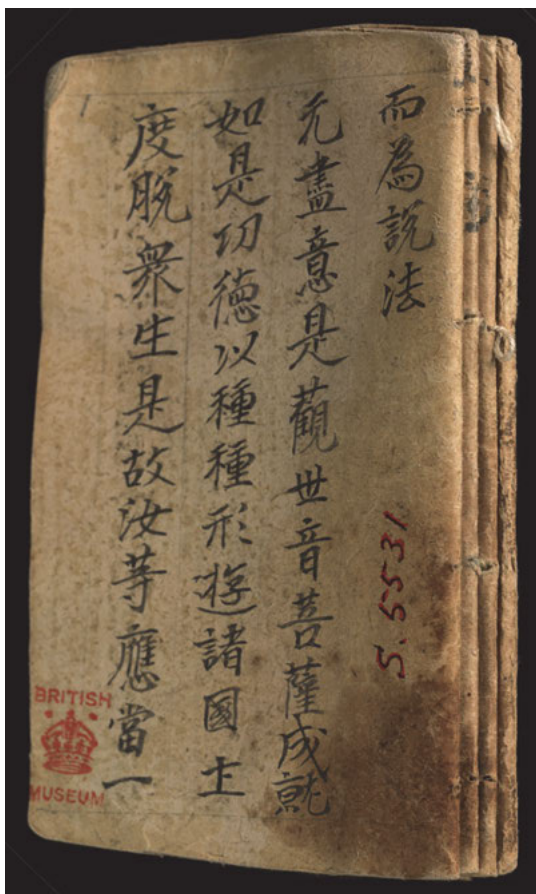 而為説法
无盡意是觀世音菩薩成就
如是功德以種種形遊諸國土
度脫衆生是故汝等應當一
S.5531
BRITISH
MUSEUM